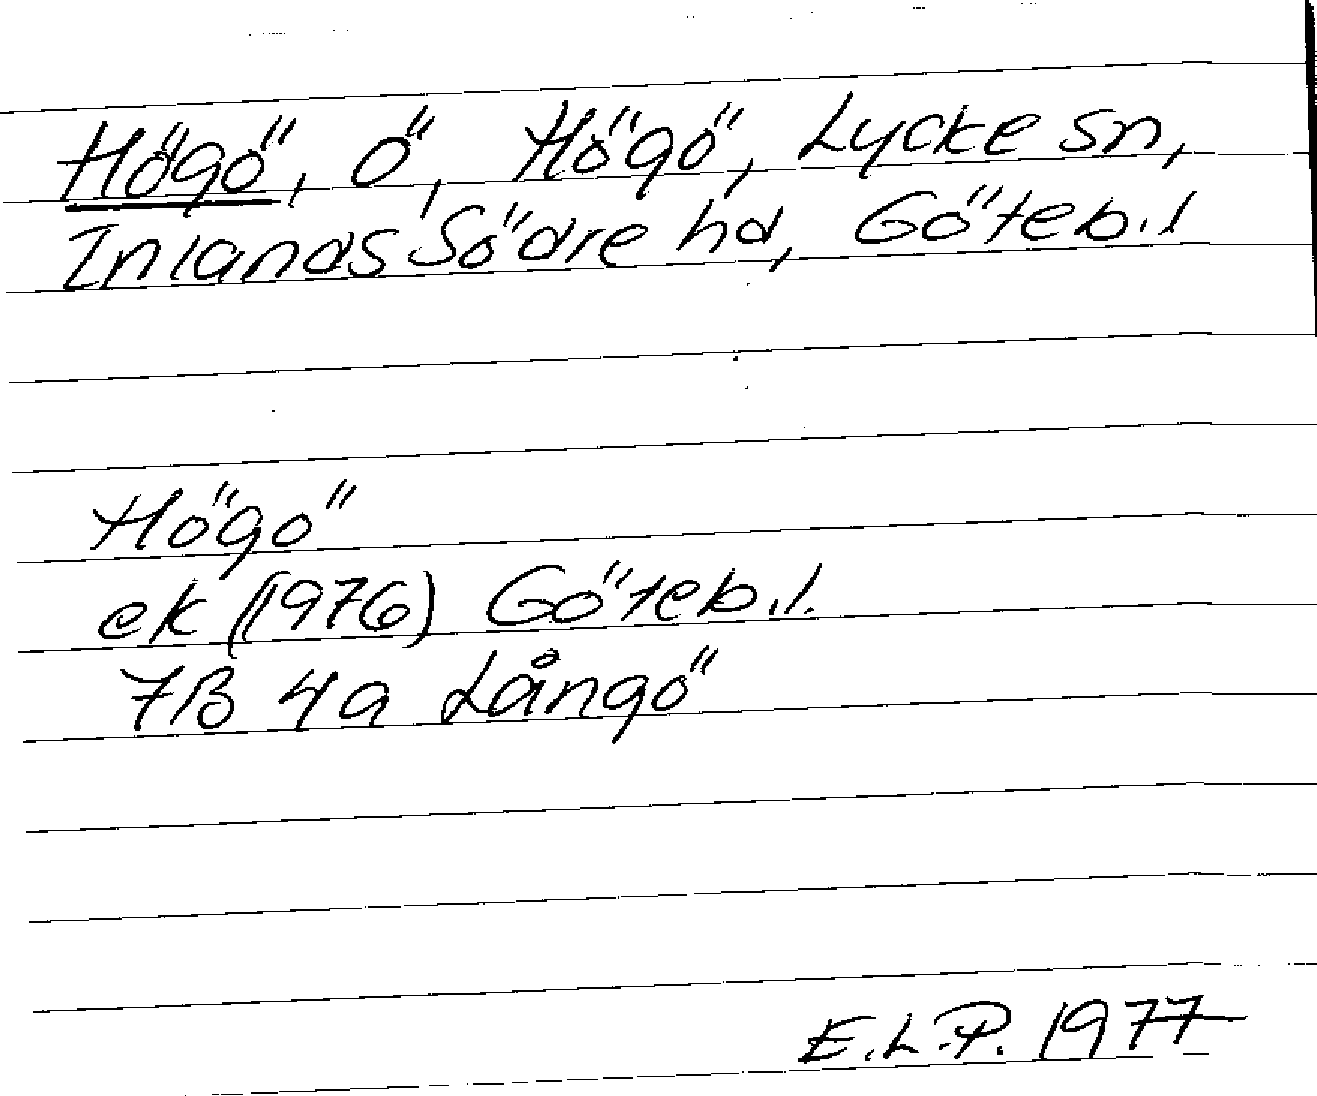 Högö, ö, Högö, Lycke sn,
Inlands Södre hd, Göteb.l
Högö
ek (1976) Göteb.l.
7B 4a Långö
E.L.P. 1977